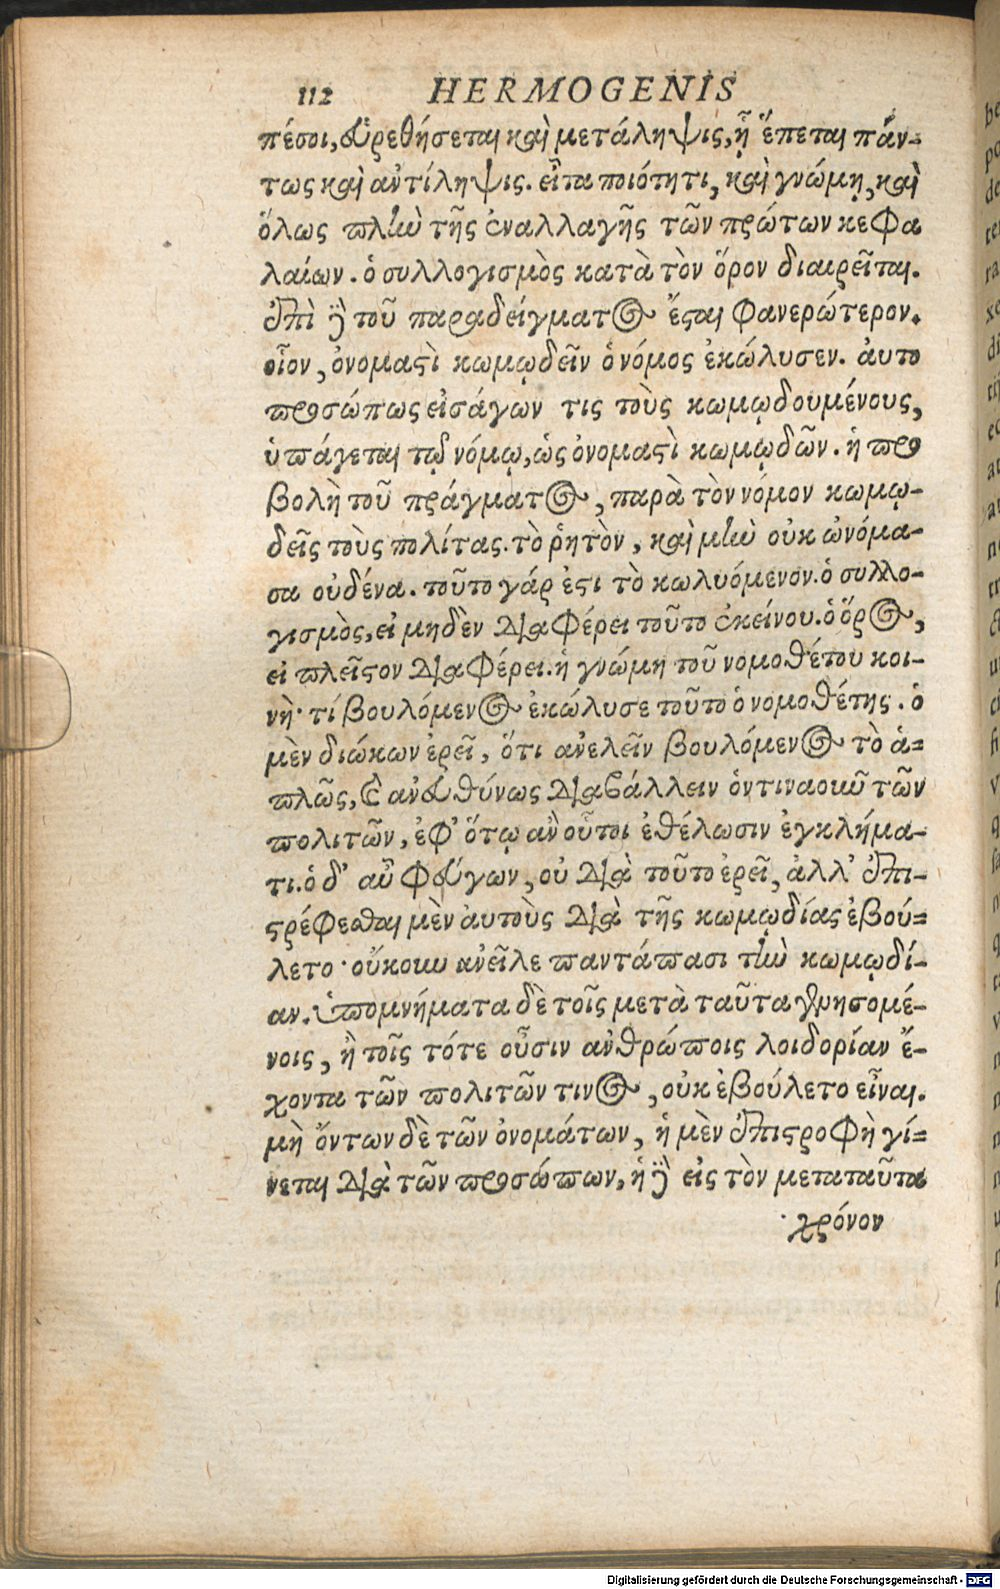 112 HERMOGENIS
πέσοι, εὑρεθήσεται καὶ μετάληψις, ᾗ ἕπεται πάν-
τως καὶ ἀντίληψις. εἶτα ποιότητι, καὶ γνώμῃ, καὶ
ὅλως πλὴν τῆς ἐναλλαγῆς τῶν πρώτων κεφα
λαίων. ὁ συλλογισμὸς κατὰ τὸν ὅρον διαιρεῖται.
ἐπὶ δὲ τοῦ παραδείγματος ἔσται φανερώτερον.
οἷον, ὀνομαστὶ κωμῳδεῖν ὁ νόμος ἐκώλυσεν. αὐτο
προσώπως εἰσάγων τις τοὺς κωμῳδουμένους,
ὑπάγεται τῷ νόμῳ, ὡς ὀνομαστὶ κωμῳδῶν. ἡ προ
βολὴ τοῦ πράγματος, παρὰ τὸν νόμον κωμῳ-
δεῖς τοὺς πολίτας. τὸ ῥητὸν, καὶ μὴν οὐκ ὠνόμα-
σα οὐδένα. τοῦτο γάρ ἐστι τὸ κωλυόμενον. ὁ συλλο-
γισμὸς, εἰ μηδὲν διαφέρει τοῦτο ἐκείνου. ὁ ὅρος,
εἰ πλεῖστον διαφέρει. ἡ γνώμη τοῦ νομοθέτου κοι-
νὴ· τί βουλόμενος ἐκώλυσε τοῦτο ὁ νομοθέτης. ὁ
μὲν διώκων ἐρεῖ, ὅτι ἀνελεῖν βουλόμενος τὸ ἁ-
πλῶς, καὶ ἀνευθύνως διαβάλλειν ὁντιναοῦν τῶν
πολιτῶν, ἐφ' ὅτῳ ἂν οὗτοι ἐθέλωσιν ἐγκλήμα-
τι. ὁ δ' αὖ φεύγων, οὐ διὰ τοῦτο ἐρεῖ, ἀλλ' ἐπι-
στρέφεσθαι μὲν αὐτοὺς διὰ τῆς κωμῳδίας ἐβού-
λετο· οὔκουν ἀνεῖλε παντάπασι τὴν κωμῳδί-
αν. ὑπομνήματα δὲ τοῖς μετὰ ταῦτα χρησομέ-
νοις, ἢ τοῖς τότε οὖσιν ἀνθρώποις λοιδορίαν ἔ-
χοντα τῶν πολιτῶν τινος, οὐκ ἐβούλετο εἶναι.
μὴ ὄντων δὲ τῶν ὀνομάτων, ἡ μὲν ἐπιστροφὴ γί-
νεται διὰ τῶν προσώπων, ἡ δὲ εἰς τὸν μεταταῦτα
χρόνον
Digitalisierung gefördert durch die Deutsche Forschungsgemeinschaft - DFG